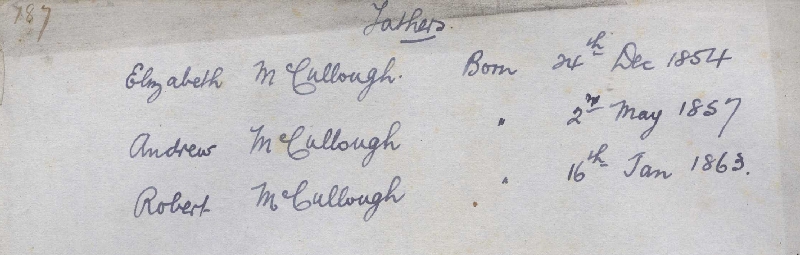 787
Fathers.
Elizabeth McCullough. Born 24th Dec 1854
Andrew McCullough " 2nd May 1857
Robert McCullough " 16th Jan 1863.